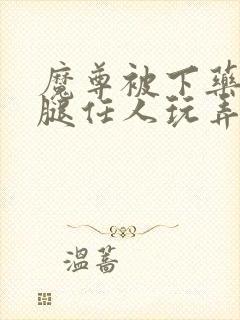 魔尊被下药
腿任人玩弄
温蒿